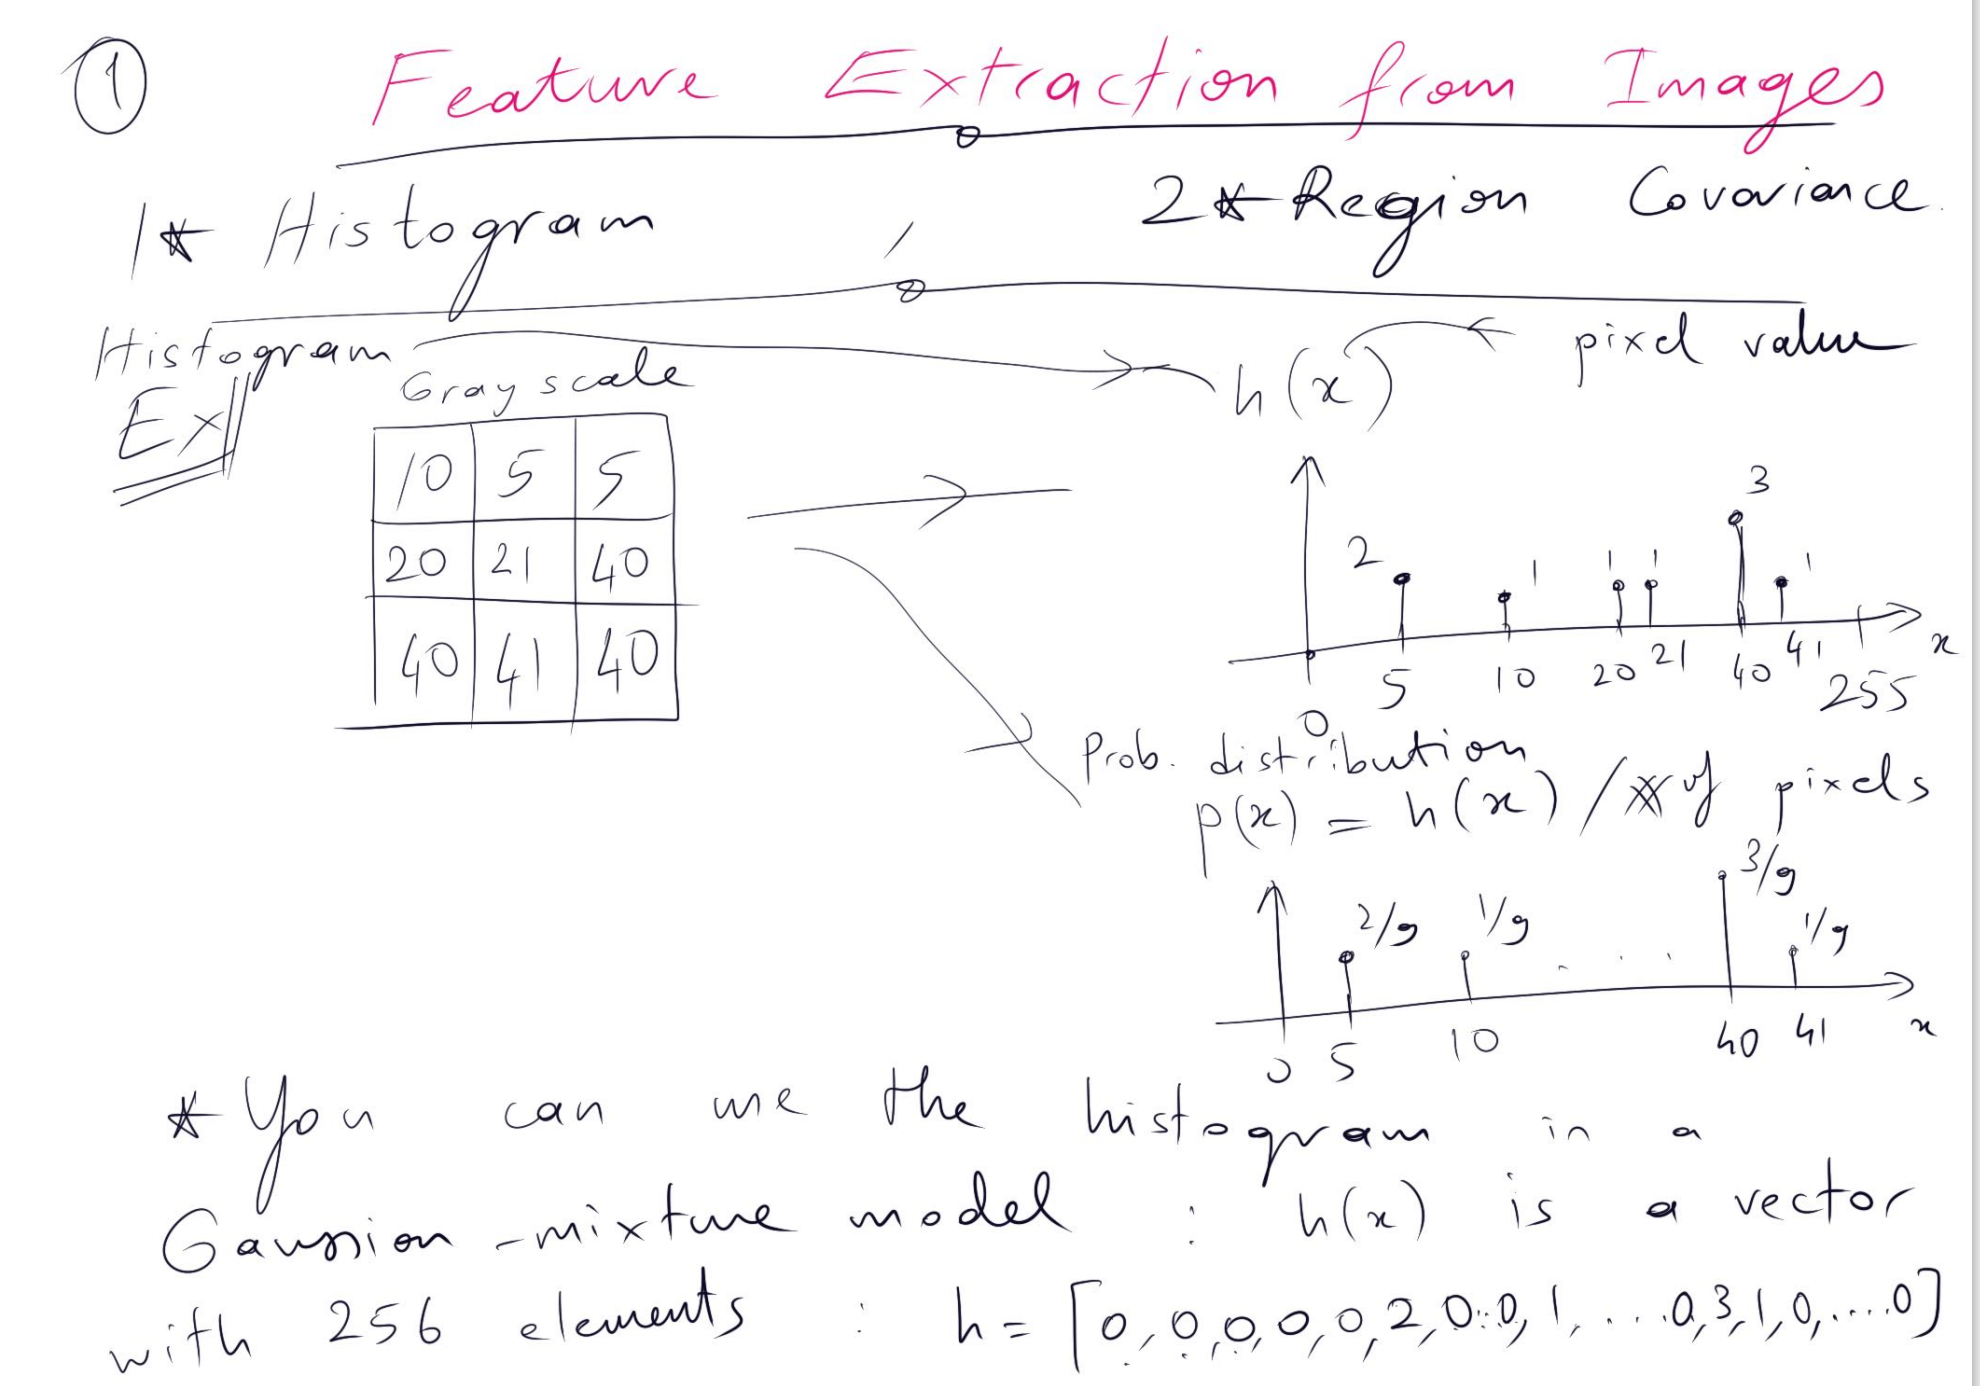 1 Feature Extraction from Images
1* Histogram , 2* Region Covariance.
Histogram h(x) pixel value
Ex Gray scale
10 5 5
20 21 40
40 41 40
3
2 1 1 1 1
5 10 20 21 40 41 255 x
0
Prob. distribution
p(x) = h(x) / # of pixels
2/9 1/9 . . . . 3/9 1/9
0 5 10 40 41 x
* You can use the histogram in a
Gaussian-mixture model : h(x) is a vector
with 256 elements : h = [0,0,0,0,0,2,0..0,1,....0,3,1,0,....0]